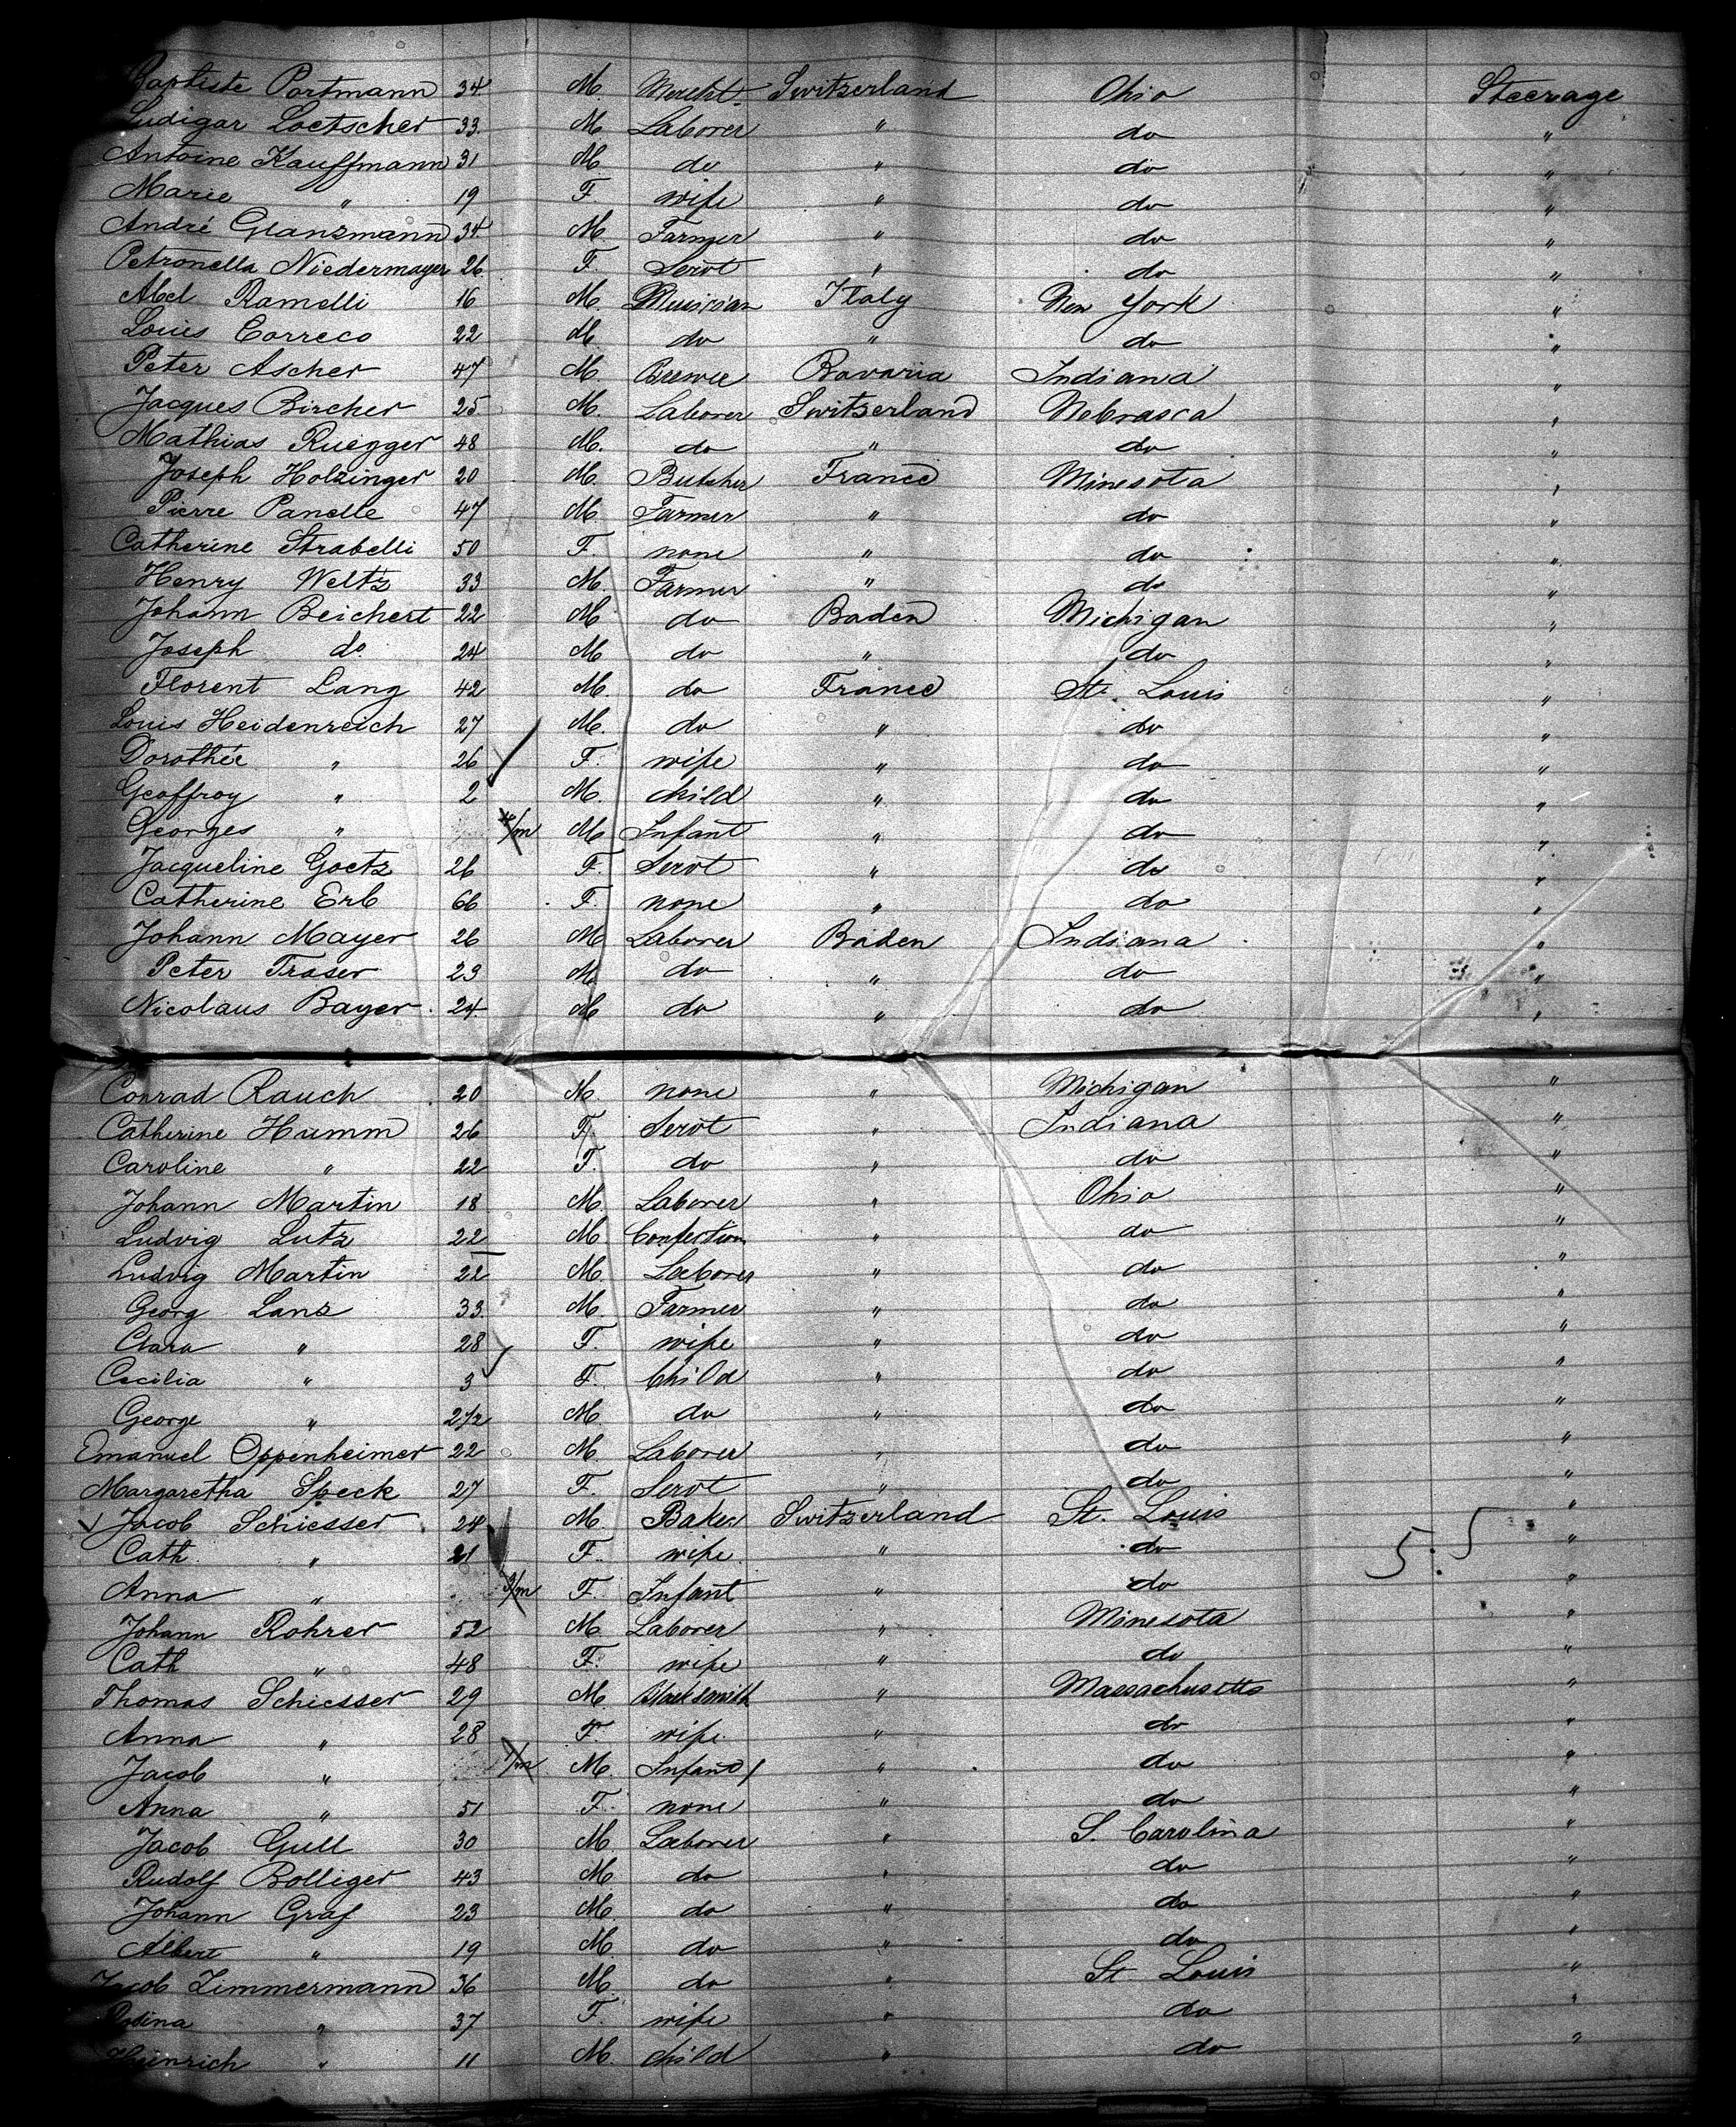 Baptiste Portmann 34 M. Mercht. Switzerland Ohio Steerage
Ludigar Loetscher 33. M Laborer " do "
Antoine Kauffmann 31 M. do " do "
Marie " 19 F. wife " do "
André Glanzmann 34 M Farmer " do "
Petronella Niedermayer 26 F. Servt " do "
Abel Ramelli 16 M. Musician Italy New York "
Louis Correco 22 M. do " do "
Peter Ascher 47 M. Brewer Bavaria Indiana "
Jacques Bircher 25 M. Laborer Switzerland Nebrasca "
Mathias Ruegger 48 M. do " do "
Joseph Holzinger 20 M. Butcher France Minesota "
Pierre Panelle 47 M Farmer " do "
Catherine Strabelli 50 F. none " do "
Henry Weltz 33 M. Farmer " do "
Johann Beichert 22 M do Baden Michigan "
Joseph do. 24 M do " do "
Florent Lang 42 M. do France St. Louis "
Louis Heidenreich 27 M. do " do "
Dorothée " 26 F. wife " do "
Geoffroy " 2 M. child " do "
Georges " /m M Infant " do "
Jacqueline Goetz 26 F. Servt " do "
Catherine Erb 66 F. none " do "
Johann Mayer 26 M Laborer Baden Indiana "
Peter Traser 23 M. do " do "
Nicolaus Bayer. 24 M do " do "
Conrad Rauch 20 M. none " Michigan "
Catherine Humm 26 F. Servt " Indiana "
Caroline " 22 F. do " do "
Johann Martin 18 M. Laborer " Ohio "
Ludvig Lutz 22 M. Confection " do "
Ludvig Martin 22 M. Laborer " do "
Georg Lanz 33. M. Farmer " do "
Clara " 28 F. wife " do "
Cecilia " 3 F. Child " do "
George " 2 1/2 M. do " do "
Emanuel Oppenheimer 22 M. Laborer " do "
Margaretha Speck 27 F. Servt " do "
✓ Jacob Schiesser 24 M. Baker Switzerland St. Louis "
Cath. " 21 F. wife " do 5.5 "
Anna " 9/m F. Infant " do "
Johann Rohrer 52 M. Laborer " Minesota "
Cath " 48 F. wife " do "
Thomas Schiesser 29 M Blacksmith " Massachusetts "
Anna " 28 F. wife " do "
Jacob " /m M. Infant " do "
Anna " 51 F. none " do "
Jacob Gull 30 M Laborer " S. Carolina "
Rudolf Bolliger 43 M do " do "
Johann Graf 23 M. do " do "
Albert " 19 M. do " do "
Jacob Zimmermann 36 M. do " St. Louis "
" 37 F. wife " do "
Heinrich " 11 M. child " do "